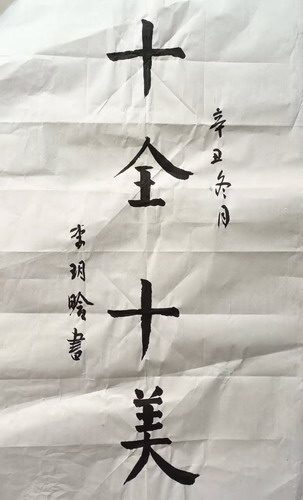 十全十美
辛丑冬月
李玥晗書